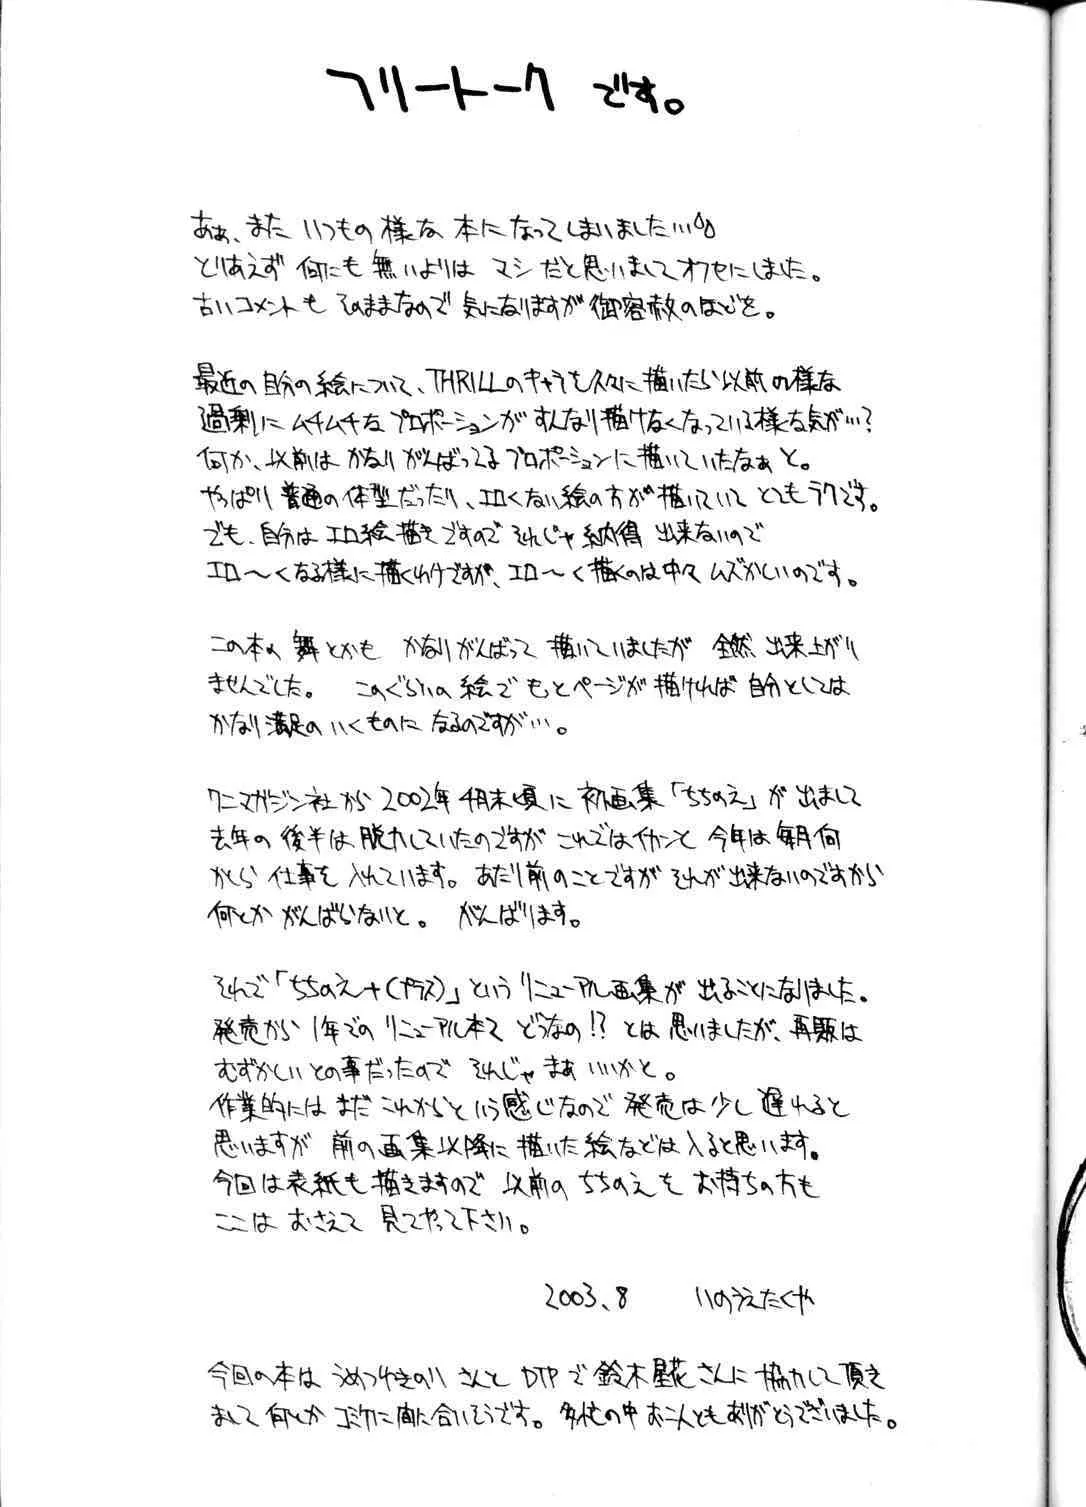 フリートーク です。
あぁ、また いつもの 様な 本に なって しまいました…
とりあえず 何にも 無いよりは マシ だと 思いまして オフセにしました。
古いコメントも そのままなので 気になりますが 御容赦のほどを。
最近の 自分の 絵について、THRILLのキャラを 久々に 描いたら 以前の様な
過剰に ムチムチな プロポーションが すんなり 描けなくなっている 様な気が…?
何か、以前は かなり がんばってる プロポーションに 描いていたなぁ と。
やっぱり 普通の 体型だったり、エロくない絵の 方が 描いていて とても ラクです。
でも、自分は エロ絵描き ですので それじゃ 納得 出来ないので
エロ〜くなる様に 描くわけですが、エロ〜く 描くのは 中々 ムズかしいのです。
この本の 舞とかも かなりがんばって 描いていましたが 全然 出来上がり
ませんでした。 このぐらいの 絵で もっとページが 描ければ 自分としては
かなり 満足の いくものに なるのですが…。
ワニマガジン社から 2002年 4月末頃に 初画集「ちちのえ」が 出まして
去年の 後半は 脱力していたのですが これではイカンと 今年は 毎月 何
かしら 仕事を 入れています。あたり前のことですが それが 出来ないのですから
何とか がんばらないと。 がんばります。
それで「ちちのえ+(プラス)」という リニューアル画集が 出ることになりました。
発売から 1年での リニューアル本て どうなの!? とは 思いましたが、再販は
むずかしい との事だったので それじゃ まぁ いいかと。
作業的には まだ これからと いう感じなので 発売は 少し 遅れると
思いますが 前の 画集以降に 描いた 絵などは 入ると思います。
今回は 表紙も 描きますので 以前の ちちのえを お持ちの 方も
ここは おさえて 見てやって下さい。
2003.8 いのうえたくや
今回の 本は うめつゆきのり さんと DTP で 鈴木星花さんに 協力して 頂き
まして 何とか コミケに 間に合いそうです。多忙の中 お二人とも ありがとうございました。